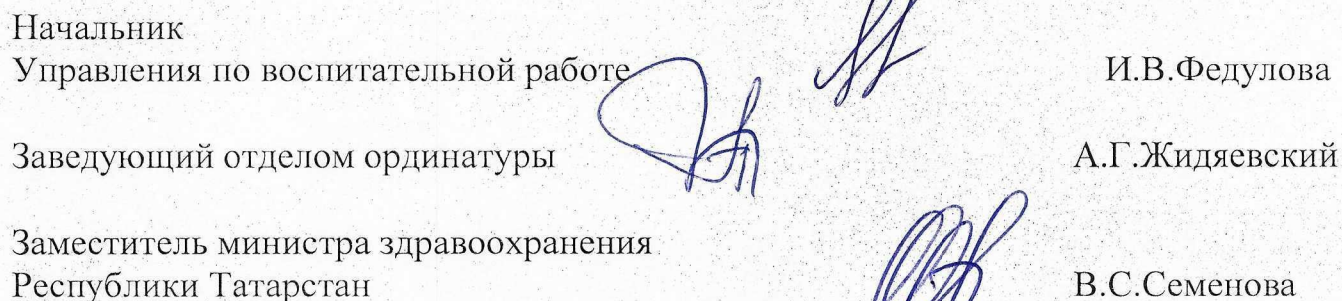 Начальник
Управления по воспитательной работе И.В.Федулова
Заведующий отделом ординатуры А.Г.Жидяевский
Заместитель министра здравоохранения
Республики Татарстан В.С.Семенова